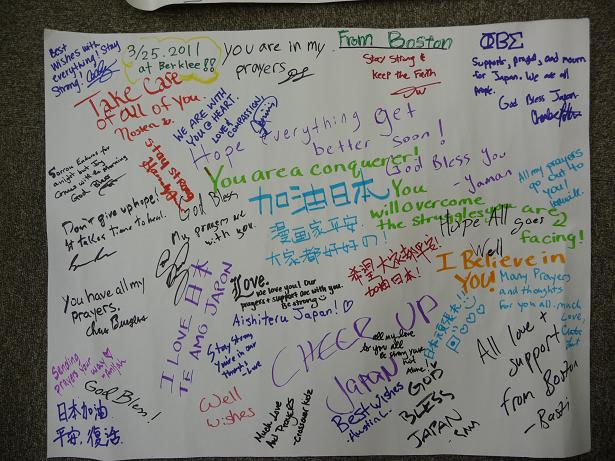 Best
Wishes with
everything! Stay
Strong!
3/25.2011
at Berklee!!
you are in my
prayers
From Boston
Stay Strong &
keep the Faith
ΦΒΣ
Supports, prays, and mourn
for Japan. We are all
people.
God Bless Japan
Take Care
of all of you.
WE ARE WITH
YOU @ HEART.
LOVE &
COMPASSION,
Hope everything get
better soon!
Sorrow Endures for
a night but Joy
Comes with the Morning
God Bless
Stay strong
You are a conquerer!
You
will overcome
the struggles you are
facing!
God Bless You
- Yaman
All my prayers
go out to
you!
God Bless
加油日本
漫画家平安.
大家都好好の!
Don't give up hope!
It takes Time to heal.
My prayers are
with you.
Hope All goes
Well
I Believe in
YOU!
Many Prayers
and thoughts
for you all. much
Love,
希望大家都平安!
加油日本!
Love.
We love you! Our
prayers + support are with you.
Be strong
Aishiteru Japan!
You have all my
prayers.
Chris Burgess
I LOVE 日本
TE AMO JAPON
Stay Strong
You're in our
thoughts
CHEER UP
JAPAN
all my love
to you all
All love +
support
From Boston
- Basti
Sending
prayers your way
God Bless!
日本加油
平安，復活
Well
wishes
Much Love
And Prayers
Best Wishes
- Austin L.
GOD
BLESS
JAPAN